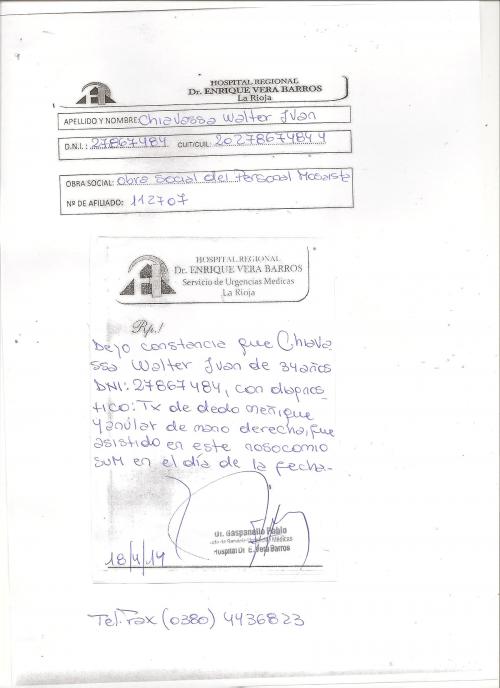 HOSPITAL REGIONAL
Dr. ENRIQUE VERA BARROS
La Rioja
APELLIDO Y NOMBRE: Chiavassa Walter Ivan
D.N.I.: 27867484 CUIT/CUIL: 20278674844
OBRA SOCIAL: Obra Social del Personal Mosaista
Nº DE AFILIADO: 112707
HOSPITAL REGIONAL
Dr. ENRIQUE VERA BARROS
Servicio de Urgencias Medicas
La Rioja
Rp./
Dejo constancia que Chiava-
ssa Walter Ivan de 34 años
DNI: 27867484, con diagnos-
tico: Tx de dedo meñique
y anular de mano derecha, fue
asistido en este nosocomio
SUM en el día de la fecha.-
Dr. Gaspanello Pablo
Médicas
Hospital Dr. E. Vera Barros
18/4/14
Tel. Fax (0380) 4436823